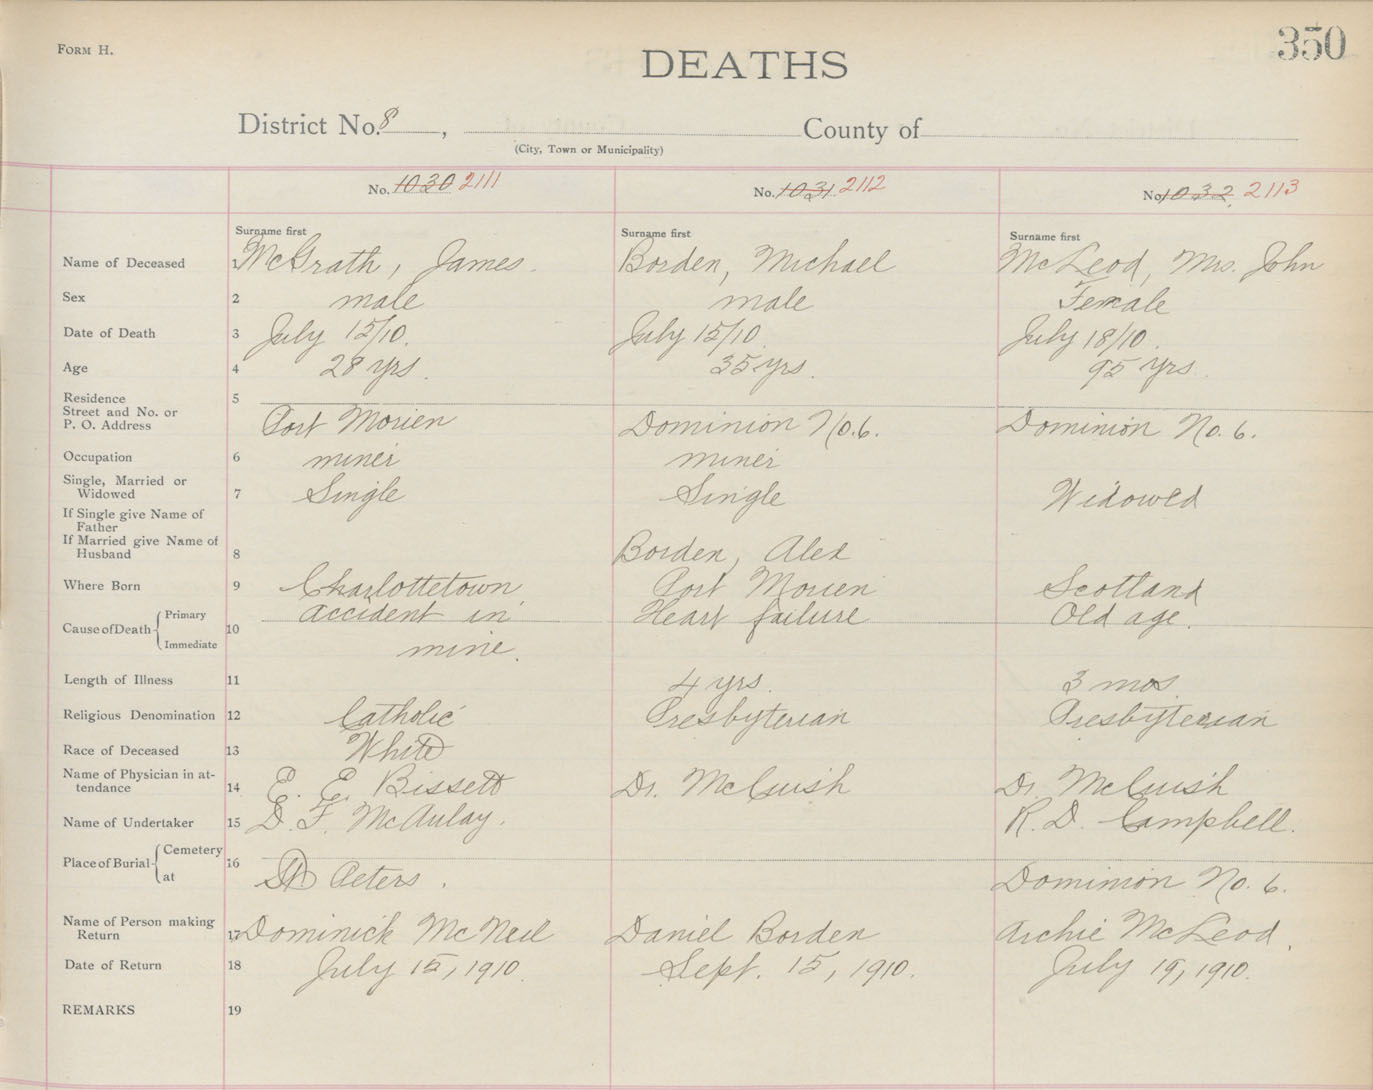 FORM H.
350
DEATHS
District No. 8 , County of
(City, Town or Municipality)
No. 1030 2111 No. 1031 2112 No 1032 2113
Surname first Surname first Surname first
Name of Deceased 1 McGrath, James. Borden, Michael McLeod, Mrs. John
Sex 2 male male Female
Date of Death 3 July 15/10. July 15/10. July 18/10.
Age 4 28 yrs. 35 yrs. 95 yrs.
Residence 5
Street and No. or
P. O. Address Port Morien Dominion No. 6. Dominion No. 6.
Occupation 6 miner miner
Single, Married or
Widowed 7 Single Single Widowed
If Single give Name of
Father
If Married give Name of
Husband 8 Borden, Alex
Where Born 9 Charlottetown Port Morien Scotland
Cause of Death Primary 10 accident in Heart failure Old age.
Immediate mine.
Length of Illness 11 4 yrs. 3 mos.
Religious Denomination 12 Catholic Presbyterian Presbyterian
Race of Deceased 13 White
Name of Physician in at-
tendance 14 E. E. Bissett Dr. McCuish Dr. McCuish
Name of Undertaker 15 D. F. McAulay. R. D. Campbell.
Place of Burial Cemetery 16
at St. Peters. Dominion No. 6.
Name of Person making
Return 17 Dominick McNeil Daniel Borden Archie McLeod.
Date of Return 18 July 15, 1910. Sept. 15, 1910. July 19, 1910.
REMARKS 19